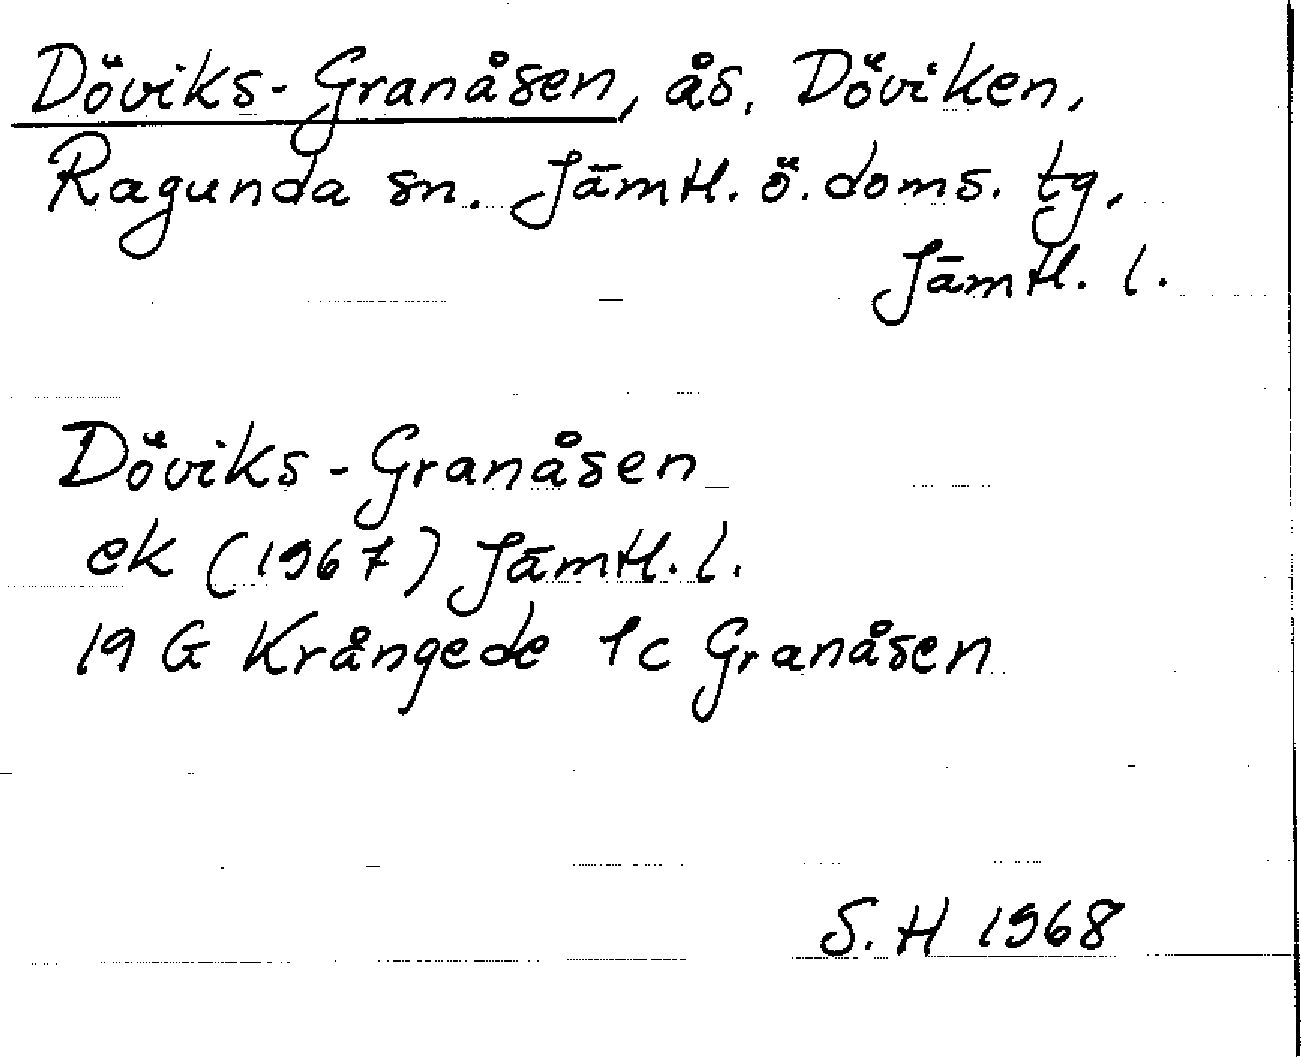 Döviks-Granåsen, ås, Döviken,
Ragunda sn. Jämtl. ö. doms. tg.
Jämtl. l.
Döviks-Granåsen
ek (1967) Jämtl. l.
19 G Krångede 1c Granåsen
S. H 1968